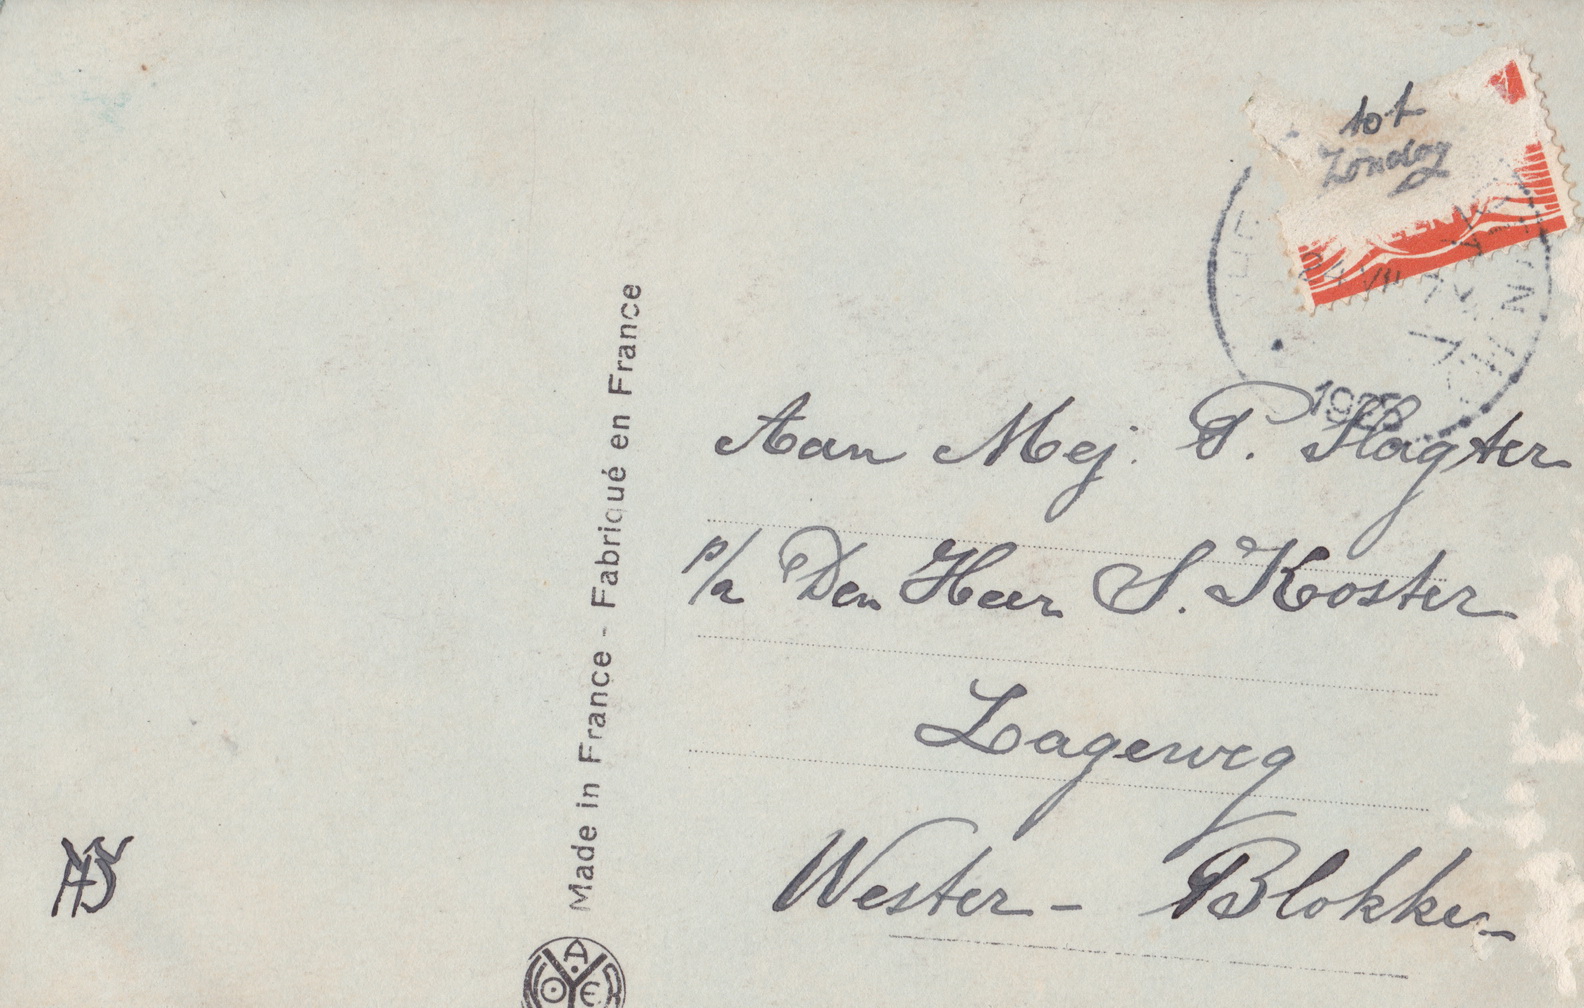 tot
Zondag
24 VII
Aan Mej. P. Slagter
p/a Den Heer S. Koster
Lageweg
Wester-Blokker
Made in France - Fabriqué en France